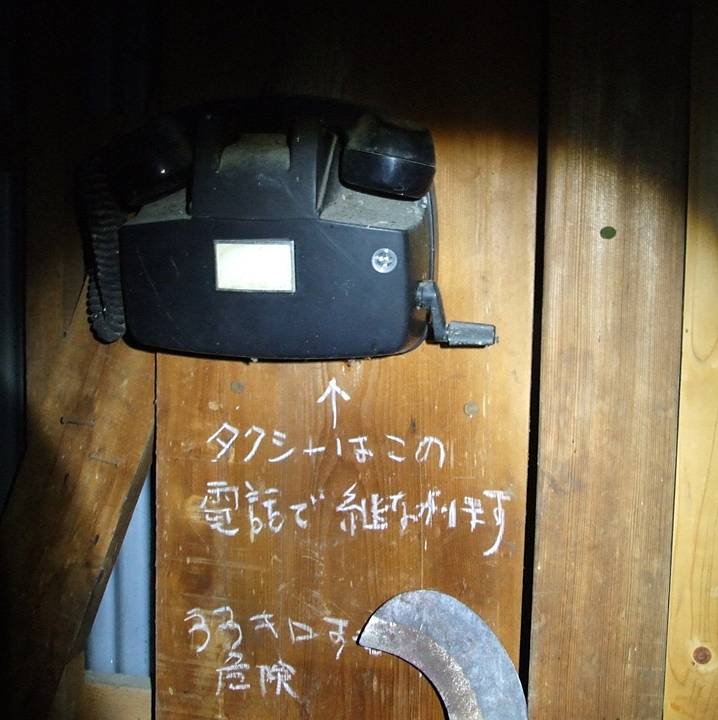 ↑
タクシーはこの
電話で継ながります
33キロす
危険